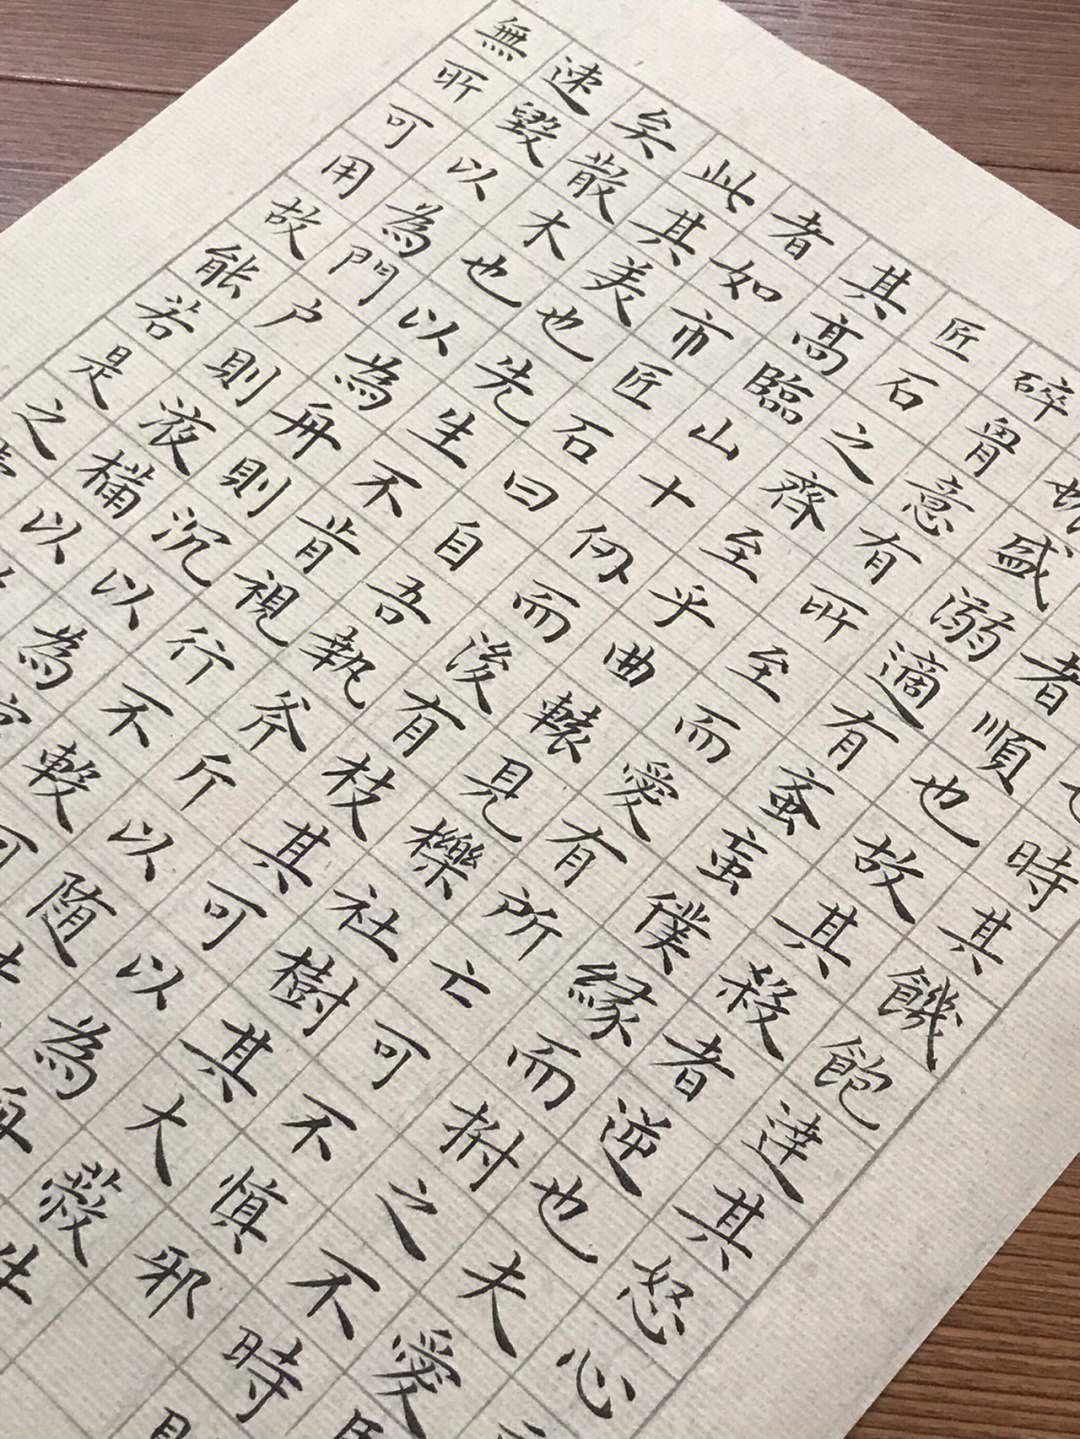 時其饑飽達其怒心
者順也故其殺者逆也夫愛
盛溺適有蚉蝱僕緣而拊之不時
碎胷意有所至而愛有所亡可不慎邪
匠石之齊至乎曲轅見櫟社樹其大蔽牛
其高臨山十仞而後有枝其可以為舟
者如市匠石曰自吾執斧斤以隨
此其美也先生不肯視行不輟
矣散木也以為舟則沉以為
速毀以為門户則液樠以
無所可用故能若是之